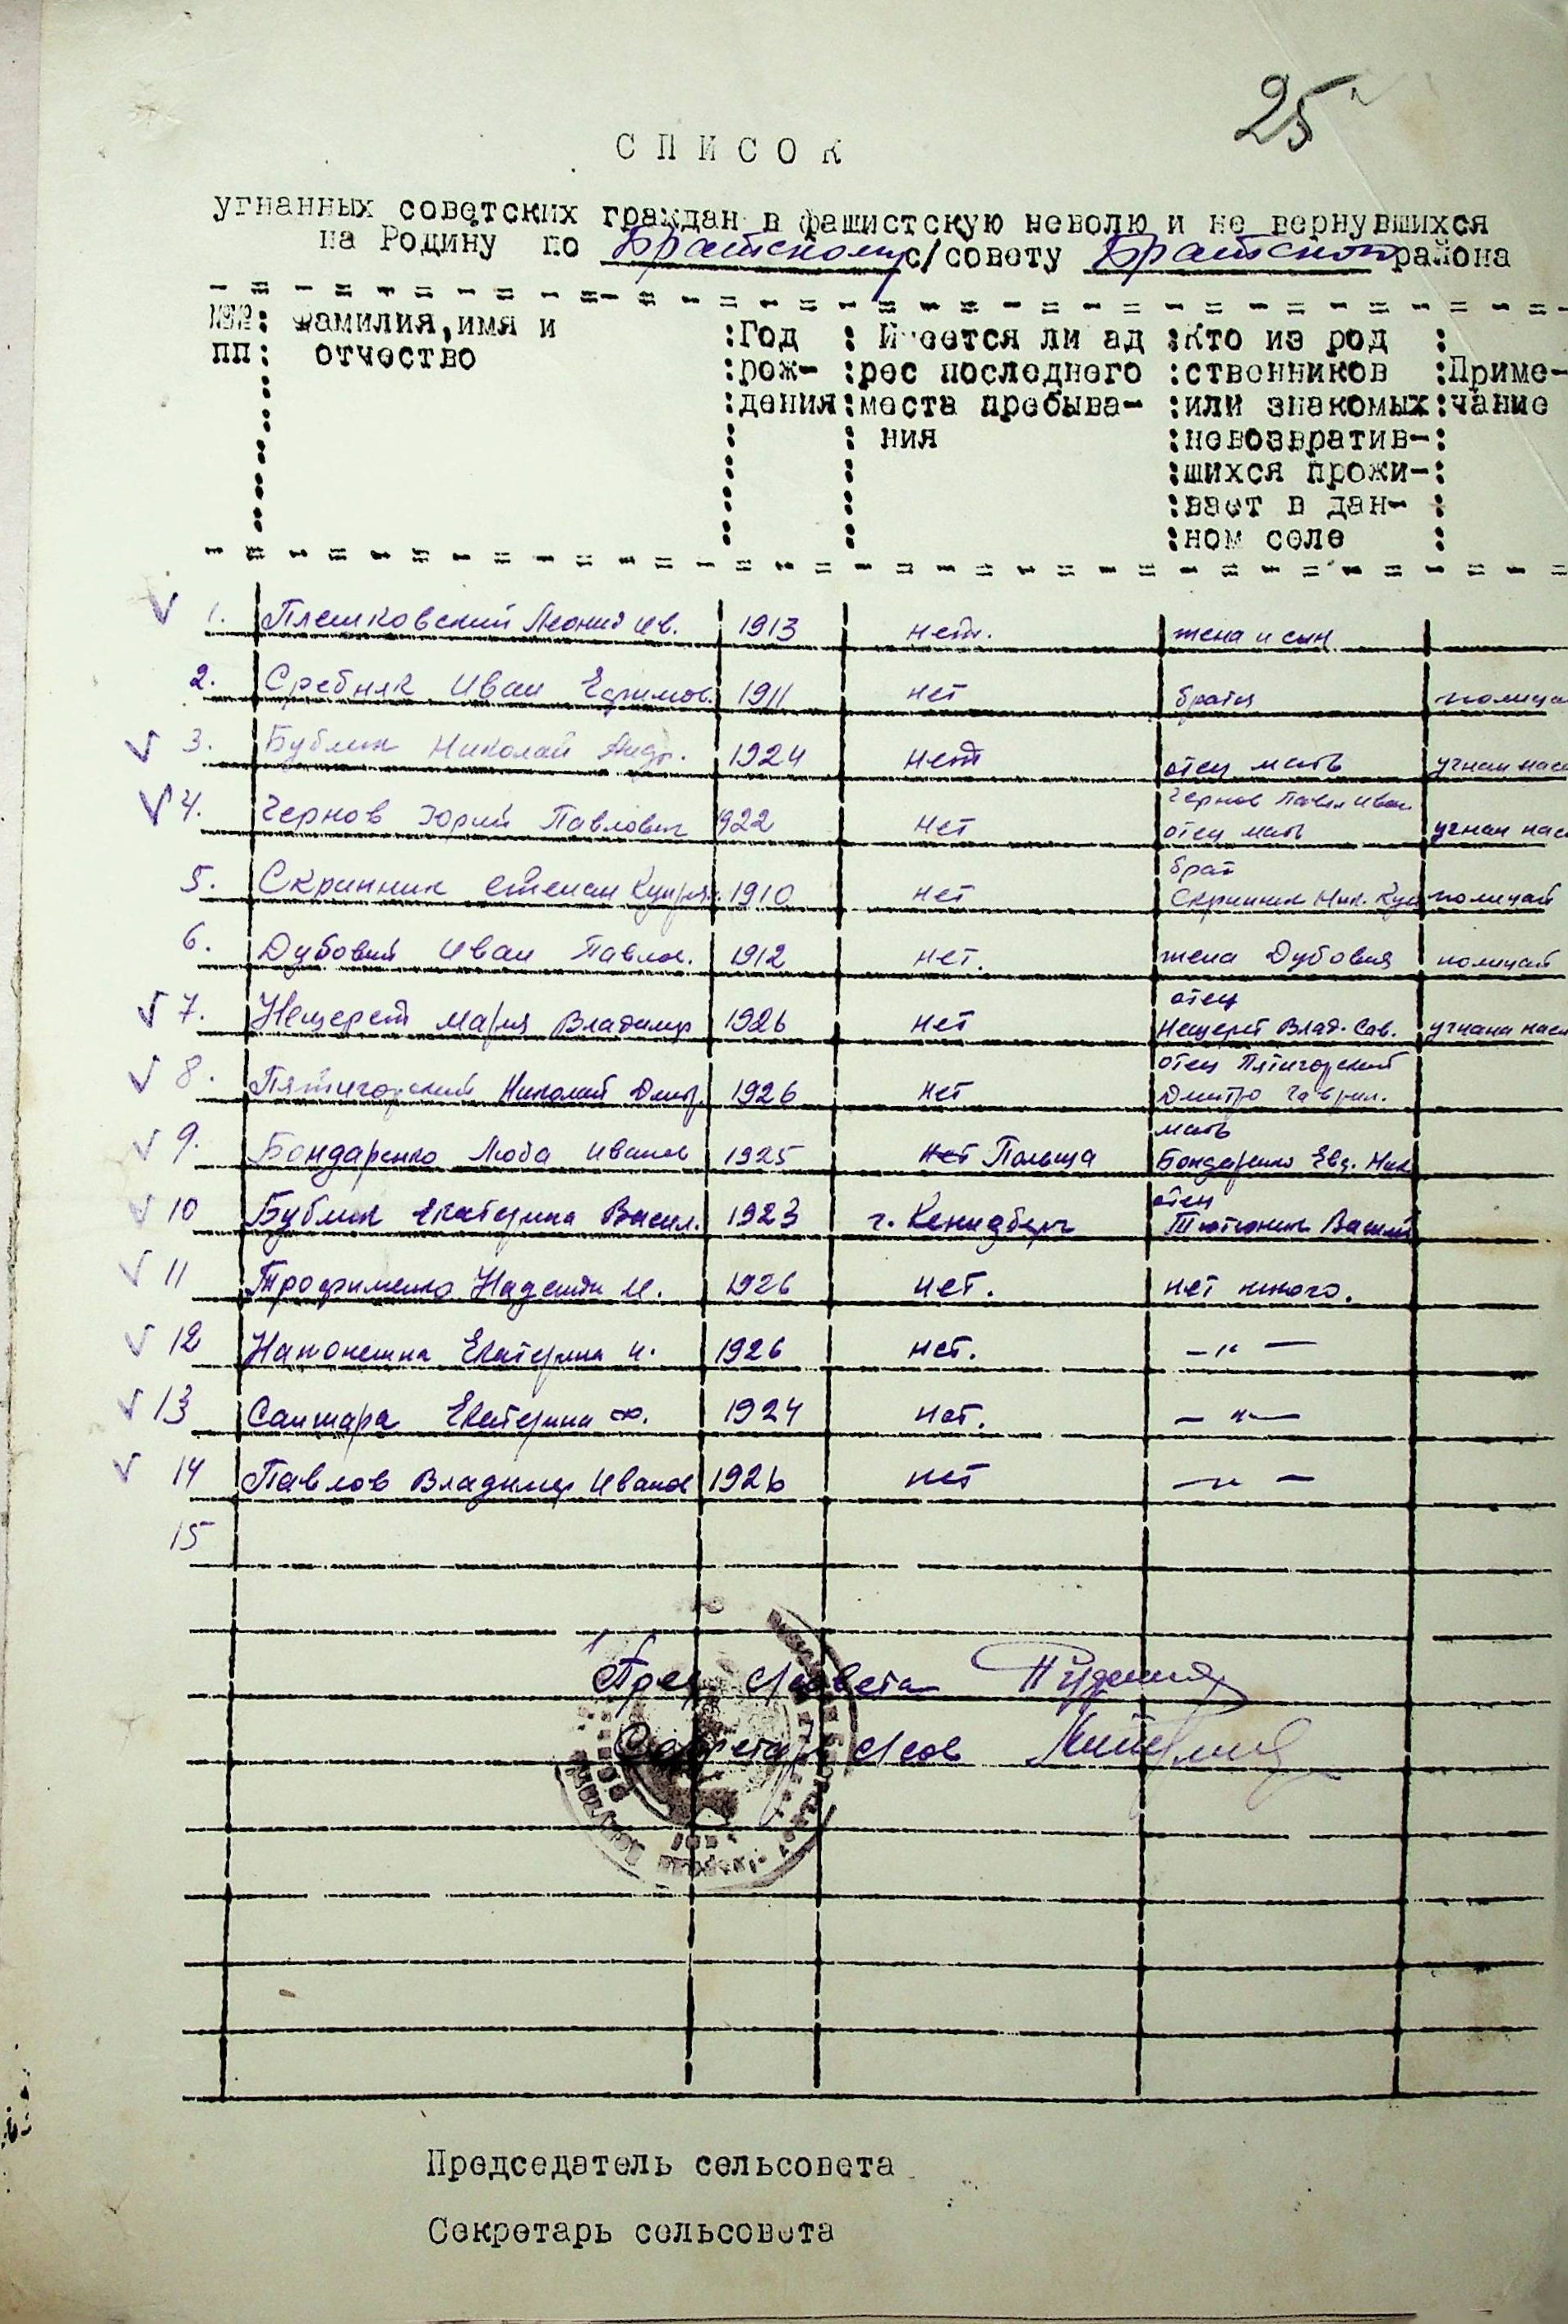 25
СПИСОК
угнанных советских граждан в фашистскую неволю и не вернувшихся
на Родину по Братскому с/совету Братского района
№№ : Фамилия, имя и :Год : Имеется ли ад :Кто из род :
пп : отчество :рож- :рес последнего :ственников :Приме-
:дения :места пребыва- :или знакомых :чание
: ния :невозвратив- :
:шихся прожи- :
:вает в дан- :
:ном селе :
1. Плешковский Леонид Ив. 1913 нет. жена и сын
2. Сребняк Иван Ефимов. 1911 нет братья полица
3. Бублик Николай Андр. 1924 нет отец мать угнан нас
4. Чернов Юрий Павлович 922 нет Чернов Павел Иван отец мать угнан нас
5. Скринник Степан Купр. 1910 нет брат Скринник Ник. Куп полицай
6. Дубовий Иван Павлов. 1912 нет. жена Дубовая полицай
7. Нещерет Мария Владимир 1926 нет отец Нещерет Влад. Сав. угнана нас
8. Пятигорский Николай Дмитр. 1926 нет отец Пятигорский Дмитро Гаврил.
9. Бондаренко Люба Иванов 1925 нет Польща мать Бондаренко Евд. Ник
10 Бублик Екатерина Васил. 1923 г. Кенигберг отец Тютюник Василий
11 Трофименко Надежда И. 1926 нет. нет никого.
12 Екатерина И. 1926 нет. —"—
13 Санжара Екатерина Ф. 1924 нет. —"—
14 Павлов Владимир Иванов 1926 нет —"—
15
Пред с/совета
Секретарь с/сов
Председатель сельсовета
Секретарь сельсовета